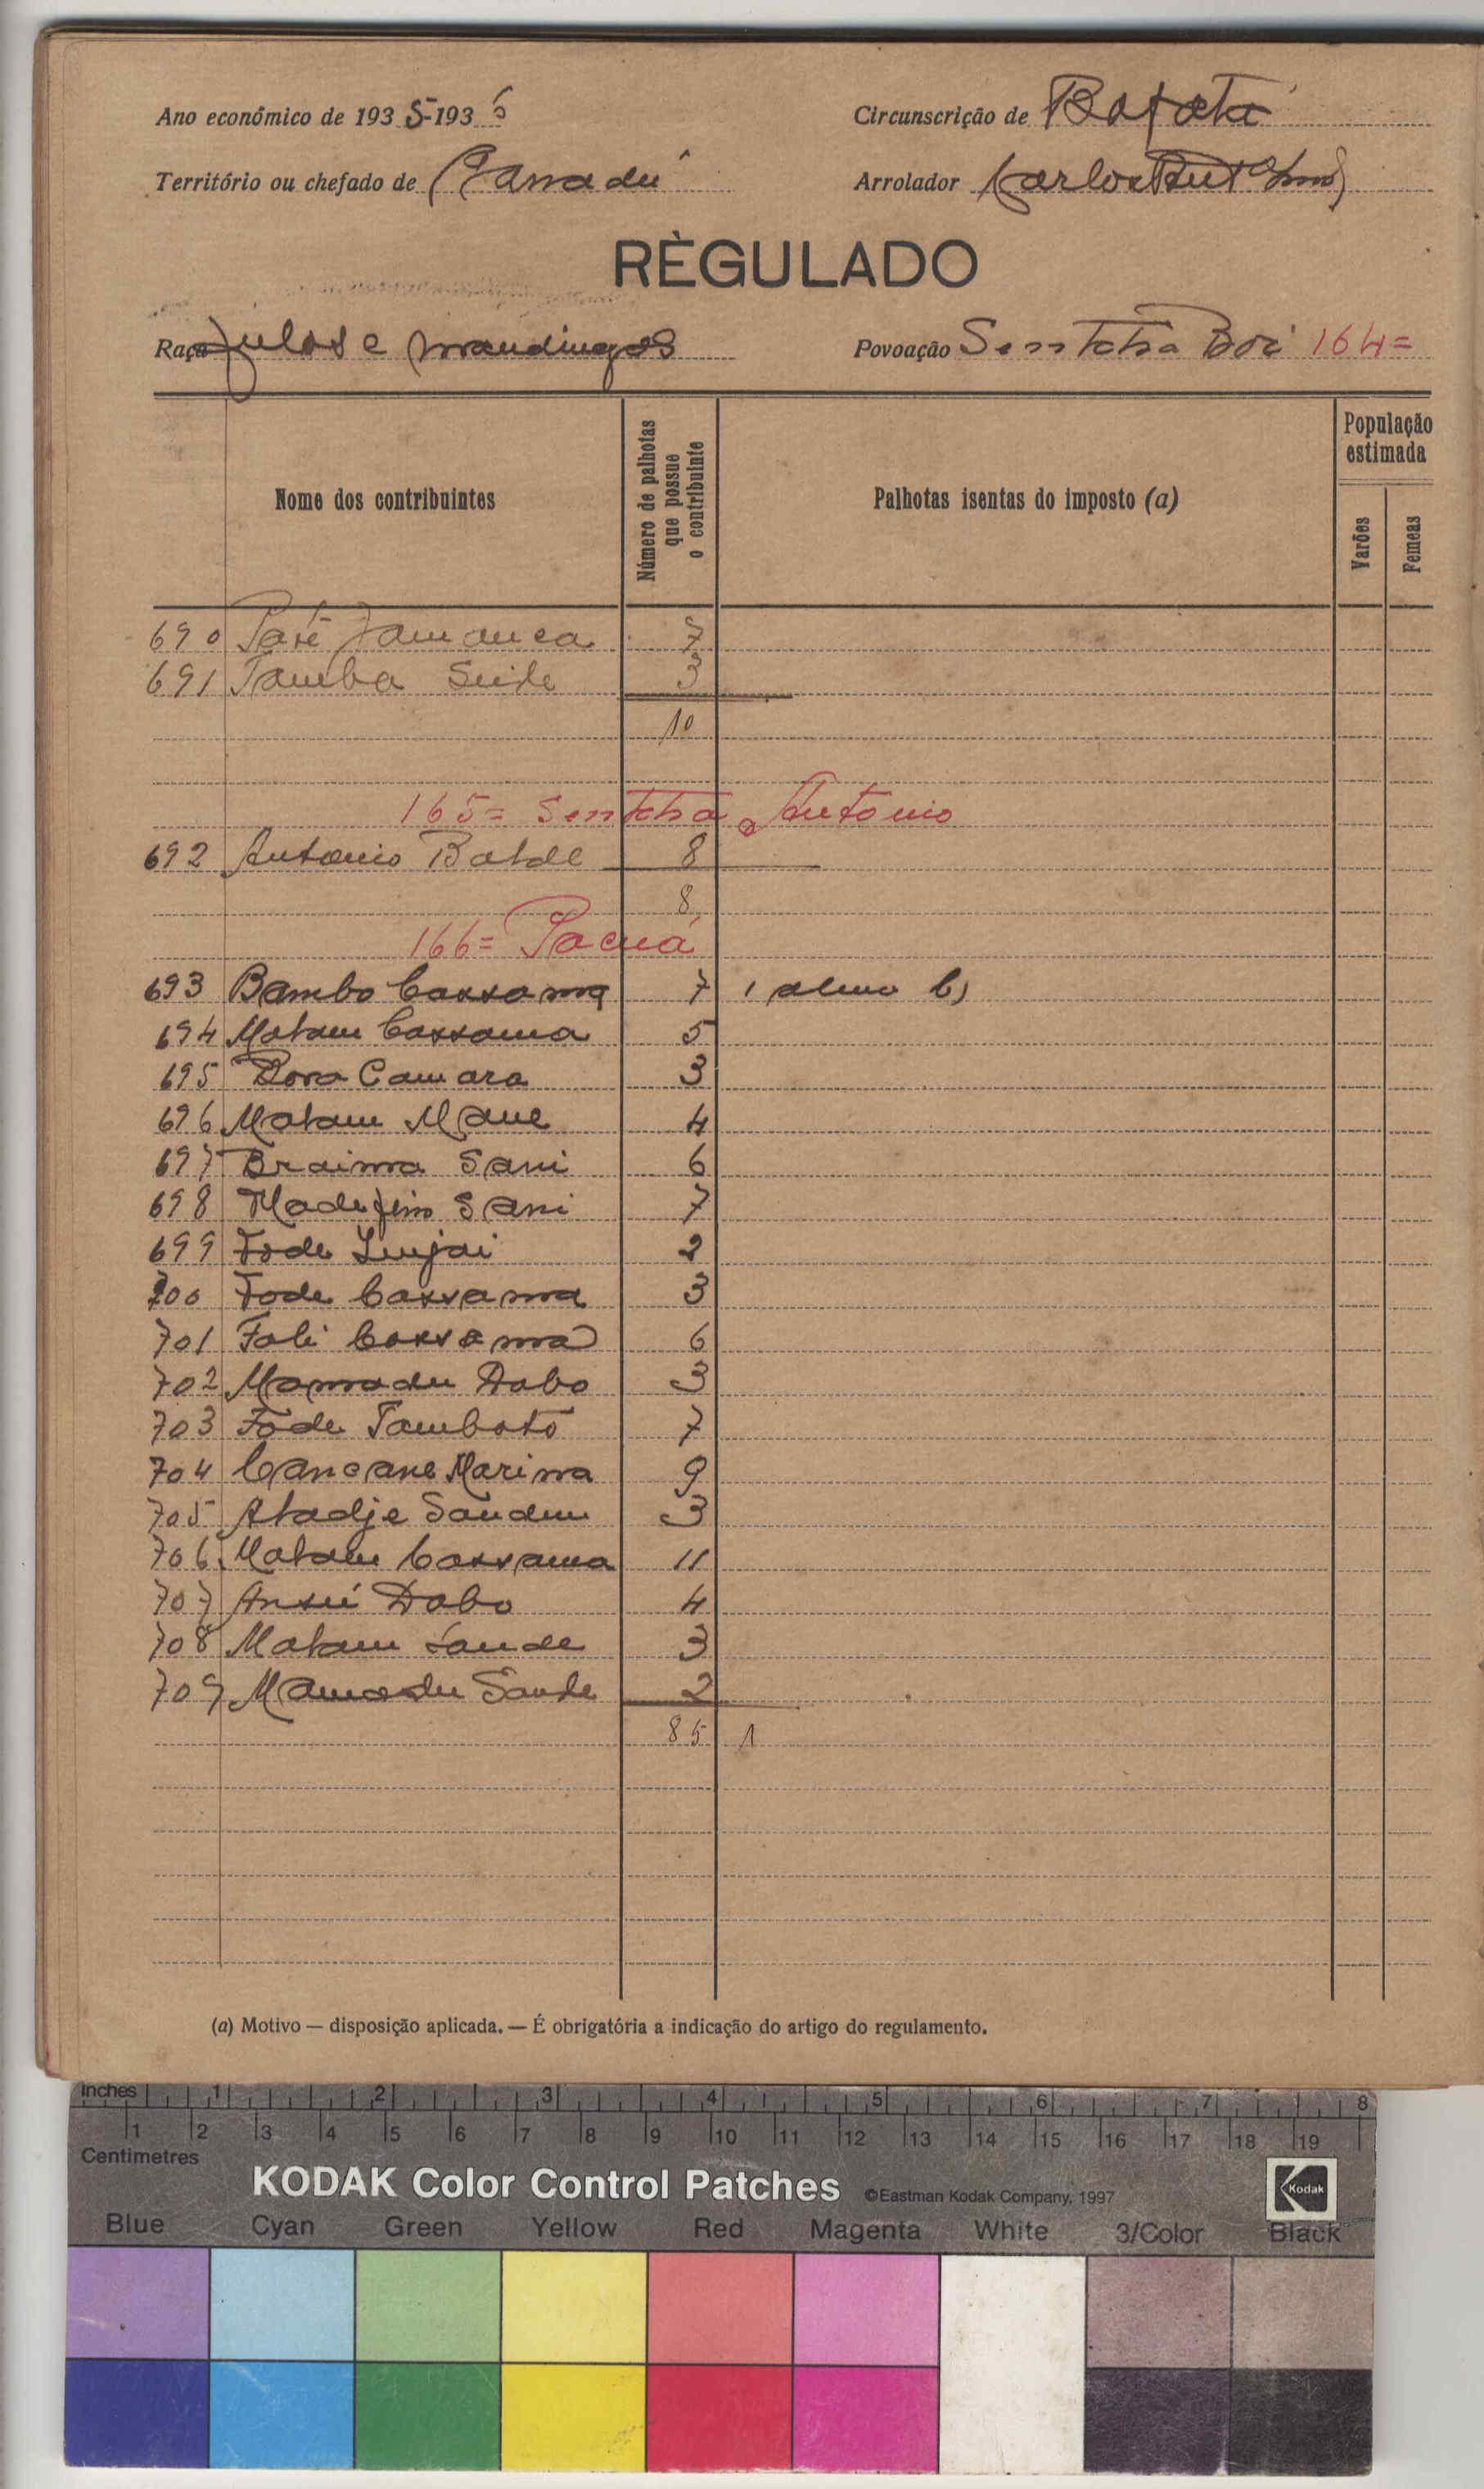 Ano económico de 193 5-193 6
Circunscrição de Bafatá
Território ou chefado de Ganadú
Arrolador Carlos
RÈGULADO
Raça fulas e mandingas
Povoação Sentcha Boi 164=
Nome dos contribuintes
Número de palhotas que possue o contribuinte
Palhotas isentas do imposto (a)
População estimada
Varões
Femeas
690 Paté Jamanca 7
691 Tamba Seide 3
10
165= Sentcha Antonio
692 Antonio Balde 8
8
166= Pacuá
693 Bambo Cassama 7 1 b)
694 Malam Cassama 5
695 Bora Camara 3
696 Malam Mane 4
697 Braima Sani 6
698 Sani 7
699 Fode 2
700 Fode Cassama 3
701 Fali Cassama 6
702 Mamadu Dabo 3
703 Fode Tamboto 7
704 Cancane Marina 9
705 Aladje 3
706 Malam Cassama 11
707 Ansú Dabo 4
708 Malam Sande 3
709 Mamadu Sande 2
85 1
(a) Motivo — disposição aplicada. — É obrigatória a indicação do artigo do regulamento.
Inches 1 2 3 4 5 6 7 8
1 2 3 4 5 6 7 8 9 10 11 12 13 14 15 16 17 18 19
Centimetres
KODAK Color Control Patches ©Eastman Kodak Company, 1997 Kodak
Blue Cyan Green Yellow Red Magenta White 3/Color Black